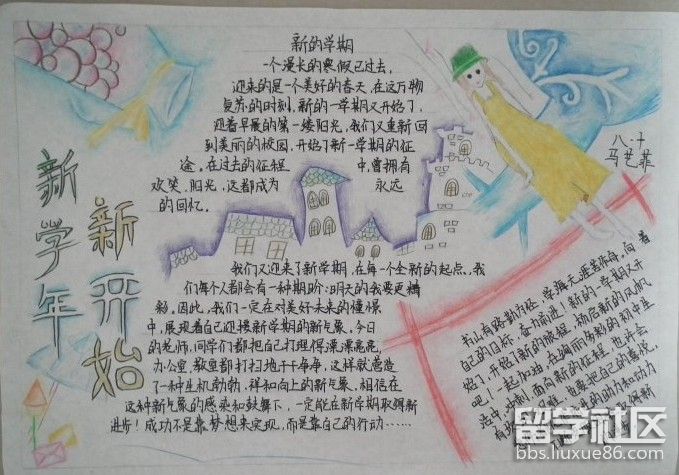 新学年
新开始
新的学期
一个漫长的寒假已过去,
迎来的是一个美好的春天,在这万物
复苏的时刻,新的一学期又开始了,
迎着早晨的第一缕阳光,我们又重新回
到美丽的校园,开始了新一学期的征
途。在过去的征程中,曾拥有
欢笑、阳光,这都成为永远
的回忆。
八、十
马艺菲
我们又迎来了新学期,在每一个全新的起点,我
们每个人都会有一种期盼:明天的我要更精
彩。因此,我们一定在对美好未来的憧憬
中,展现着自己迎接新学期的新气象,今日
的老师,同学们都把自己打理得漂漂亮亮,
办公室、教室都打扫地干干净净,这样就营造
了一种生机勃勃、祥和向上的新气象,相信在
这种新气象的感染和鼓舞下,一定能在新学期取得新
进步!成功不是靠梦想来实现,而是靠自己的行动……
书山有路勤为径,学海无涯苦作舟,向着
自己的目标,奋力前进!新的一学期又开
始了,开始了新的旅程,扬启新的风帆
吧!一起加油,在绚丽多彩的初中生
活中,冲刺,面向新的征程,
留学社区
bbs.liuxue86.com